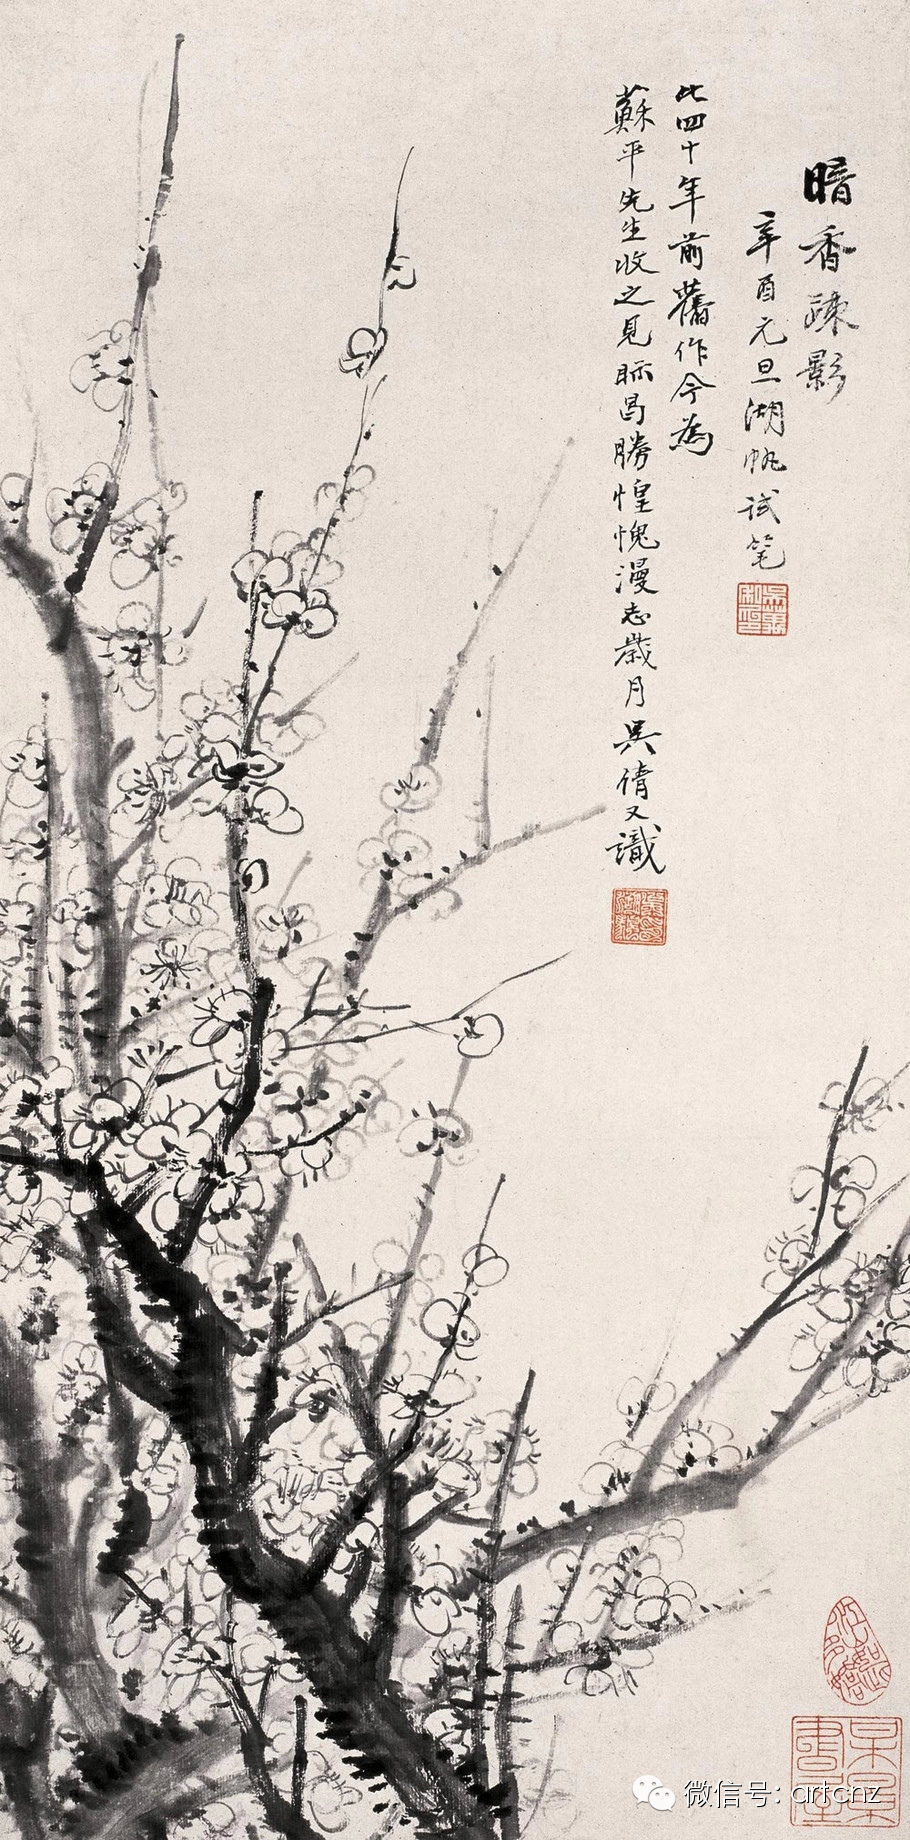 暗香疎影
辛酉元旦湖帆试笔
此四十年前舊作今為
蘇平先生收之見眎曷勝惶愧漫志歲月吳倩又識
微信号: artcnz